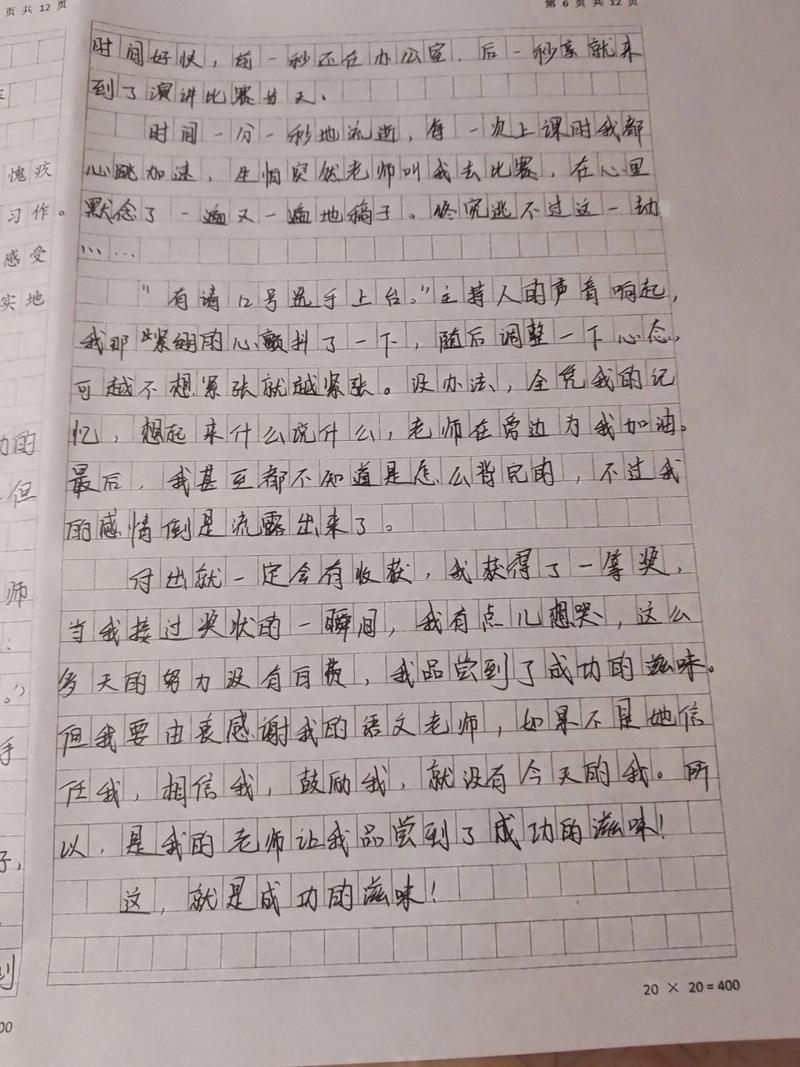 页 共 12 页
第 6 页 共 12 页
愧疚
习作。
感受
实地
功的
但
师
。")
手
子,
到
00
时间好快,前一秒还在办公室,后一秒就来
到了演讲比赛当天。
时间一分一秒地流逝,每一次上课时我都
心跳加速,生怕突然老师叫我去比赛,在心里
默念了一遍又一遍地稿子。终究逃不过这一劫
……
"有请12号选手上台。"主持人的声音响起,
我那紧绷的心颤抖了一下,随后调整一下心态,
可越不想紧张就越紧张。没办法,全凭我的记
忆,想起来什么说什么,老师在旁边为我加油。
最后,我甚至都不知道是怎么背完的,不过我
的感情倒是流露出来了。
付出就一定会有收获,我获得了一等奖,
当我接过奖状的一瞬间,我有点儿想哭,这么
多天的努力没有白费,我品尝到了成功的滋味。
但我要由衷感谢我的语文老师,如果不是她信
任我,相信我,鼓励我,就没有今天的我。所
以,是我的老师让我品尝到了成功的滋味!
这,就是成功的滋味!
20 × 20=400